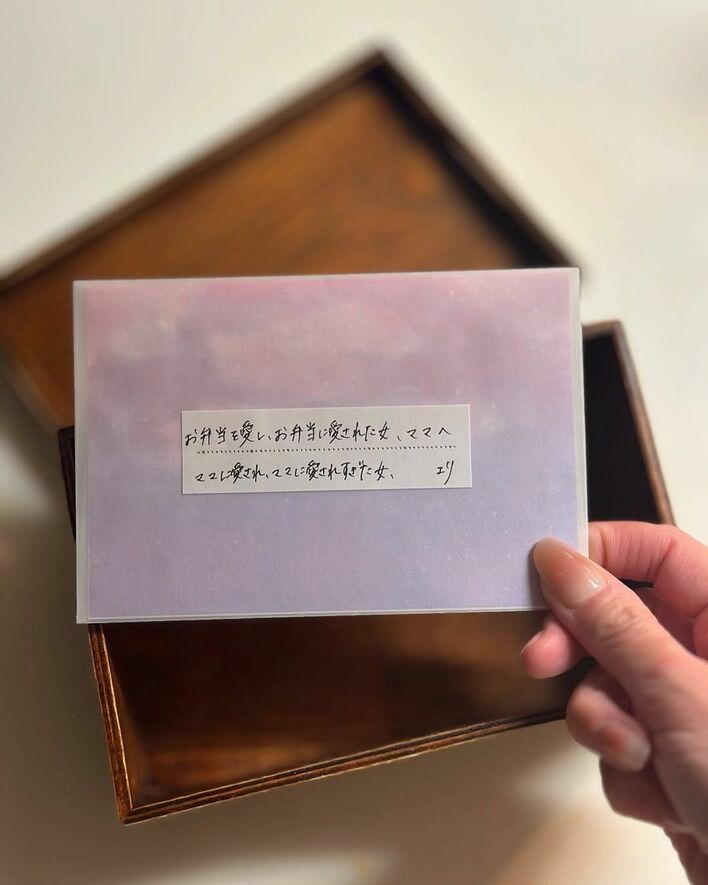 お弁当を愛し、お弁当に愛された女、ママへ
ママに愛され、ママに愛されすぎた女、 エリ